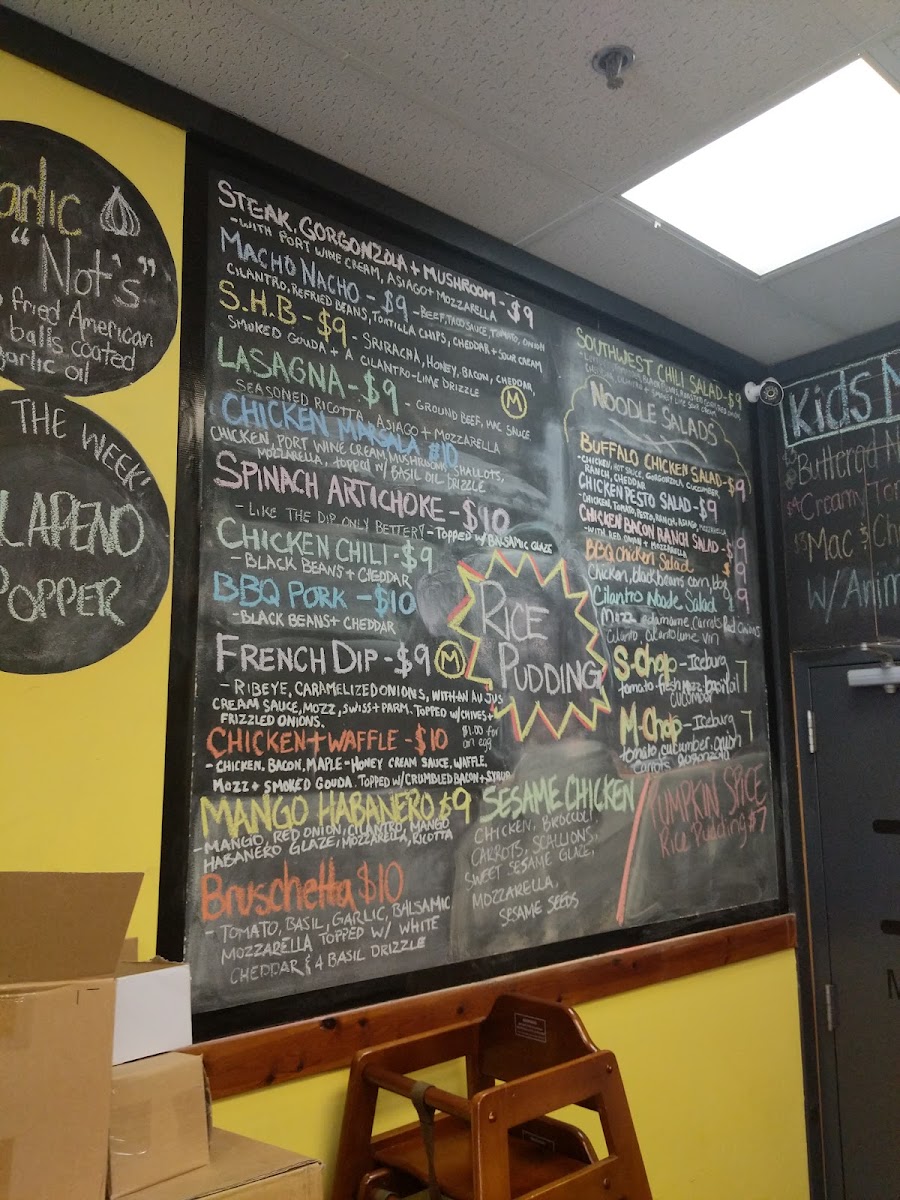 arlic
"Not's"
fried American
balls coated
garlic oil
THE WEEK'
LAPENO
POPPER
STEAK, GORGONZOLA + MUSHROOM - $9
- WITH PORT WINE CREAM, ASIAGO + MOZZARELLA
MACHO NACHO - $9 - BEEF, TACO SAUCE, TOMATO, ONION
CILANTRO, REFRIED BEANS, TORTILLA CHIPS, CHEDDAR + SOUR CREAM
S.H.B - $9 - SRIRACHA, HONEY, BACON, CHEDDAR,
SMOKED GOUDA + A CILANTRO-LIME DRIZZLE
M
LASAGNA - $9 - GROUND BEEF, MAC SAUCE
SEASONED RICOTTA, ASIAGO + MOZZARELLA
CHICKEN MARSALA $10
CHICKEN, PORT WINE CREAM MUSHROOMS, SHALLOTS,
MOZZARELLA, TOPPED W/ BASIL OIL DRIZZLE
SPINACH ARTICHOKE - $10
- LIKE THE DIP ONLY BETTER! - TOPPED W/ BALSAMIC GLAZE
CHICKEN CHILI - $9
- BLACK BEANS + CHEDDAR
BBQ PORK - $10
- BLACK BEANS + CHEDDAR
FRENCH DIP - $9 M
- RIBEYE, CARAMELIZED ONIONS, WITH AN AU JUS
CREAM SAUCE, MOZZ, SWISS + PARM. TOPPED W/ CHIVES +
FRIZZLED ONIONS.
$1.00 for
an egg
CHICKEN + WAFFLE - $10
- CHICKEN, BACON, MAPLE-HONEY CREAM SAUCE, WAFFLE,
MOZZ + SMOKED GOUDA. TOPPED W/ CRUMBLED BACON + SYRUP
MANGO HABANERO $9
- MANGO, RED ONION, CILANTRO, MANGO
HABANERO GLAZE, MOZZARELLA, RICOTTA
Bruschetta $10
- TOMATO, BASIL, GARLIC, BALSAMIC
MOZZARELLA TOPPED W/ WHITE
CHEDDAR & A BASIL DRIZZLE
RICE
PUDDING
SESAME CHICKEN
CHICKEN, BROCCOLI,
CARROTS, SCALLIONS,
SWEET SESAME GLAZE,
MOZZARELLA,
SESAME SEEDS
SOUTHWEST CHILI SALAD - $9
NOODLE SALADS
BUFFALO CHICKEN SALAD - $9
- CHICKEN, HOT SAUCE, GORGONZOLA, CUCUMBER,
RANCH, CHEDDAR
CHICKEN PESTO SALAD - $9
- CHICKEN, TOMATO, PESTO, RANCH, ASIAGO, MOZZARELLA
CHICKEN BACON RANCH SALAD - $9
- WITH RED ONION + MOZZARELLA
BBQ chicken Salad $9
Chicken, black beans, corn, bbq
Cilantro Noodle Salad 9
Mozz, edamame, carrots, Red Onions
cilantro, cilantro lime vin
S-Chop - Iceburg 7
tomato - fresh mozz, basil oil
cucumber
M-Chop - Iceburg 7
tomato, cucumber, onion
carrots, gorgonzola
PUMPKIN SPICE
Rice Pudding $7
Kids M
Buttered N
Cream Tom
Mac & Che
W/ Anim